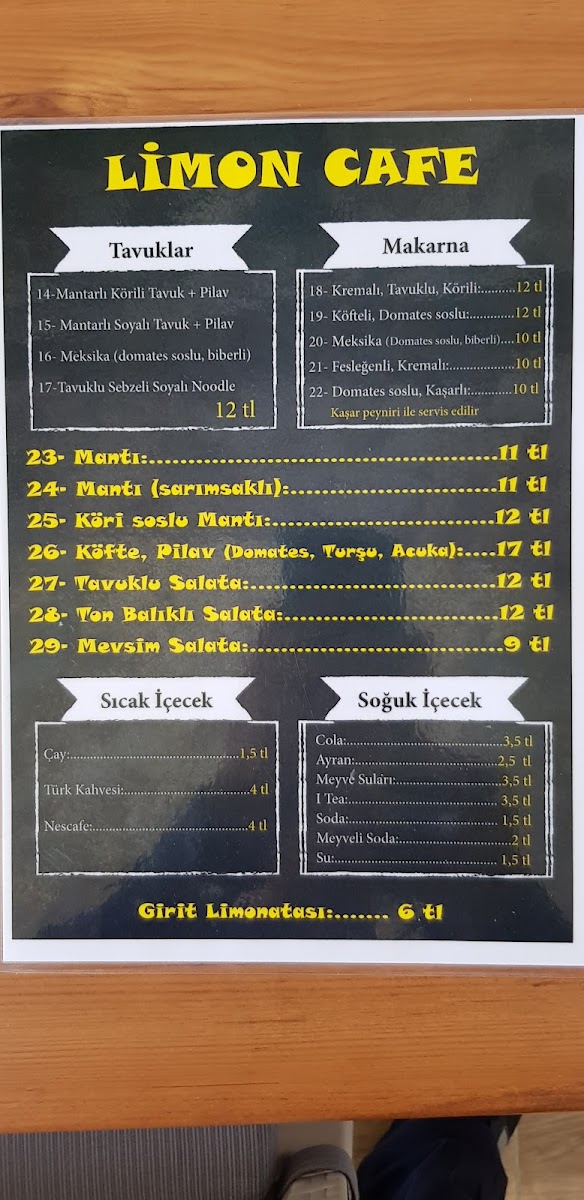 LİMON CAFE
Tavuklar
14-Mantarlı Körili Tavuk + Pilav
15- Mantarlı Soyalı Tavuk + Pilav
16- Meksika (domates soslu, biberli)
17-Tavuklu Sebzeli Soyalı Noodle
12 tl
Makarna
18- Kremalı, Tavuklu, Körili:..........12 tl
19- Köfteli, Domates soslu:.............12 tl
20- Meksika (Domates soslu, biberli)....10 tl
21- Fesleğenli, Kremalı:...................10 tl
22- Domates soslu, Kaşarlı:............10 tl
Kaşar peyniri ile servis edilir
23- Mantı:..............................................11 tl
24- Mantı (sarımsaklı):...........................11 tl
25- Köri soslu Mantı:.............................12 tl
26- Köfte, Pilav (Domates, Turşu, Acuka):....17 tl
27- Tavuklu Salata:................................12 tl
28- Ton Balıklı Salata:............................12 tl
29- Mevsim Salata:.................................9 tl
Sıcak İçecek
Çay:..................................................1,5 tl
Türk Kahvesi:.....................................4 tl
Nescafe:..............................................4 tl
Soğuk İçecek
Cola:..............................................3,5 tl
Ayran:..........................................2,5 tl
Meyve Suları:................................3,5 tl
I Tea:............................................. 3,5 tl
Soda:............................................. 1,5 tl
Meyveli Soda:..................................2 tl
Su:................................................. 1,5 tl
Girit Limonatası:........ 6 tl